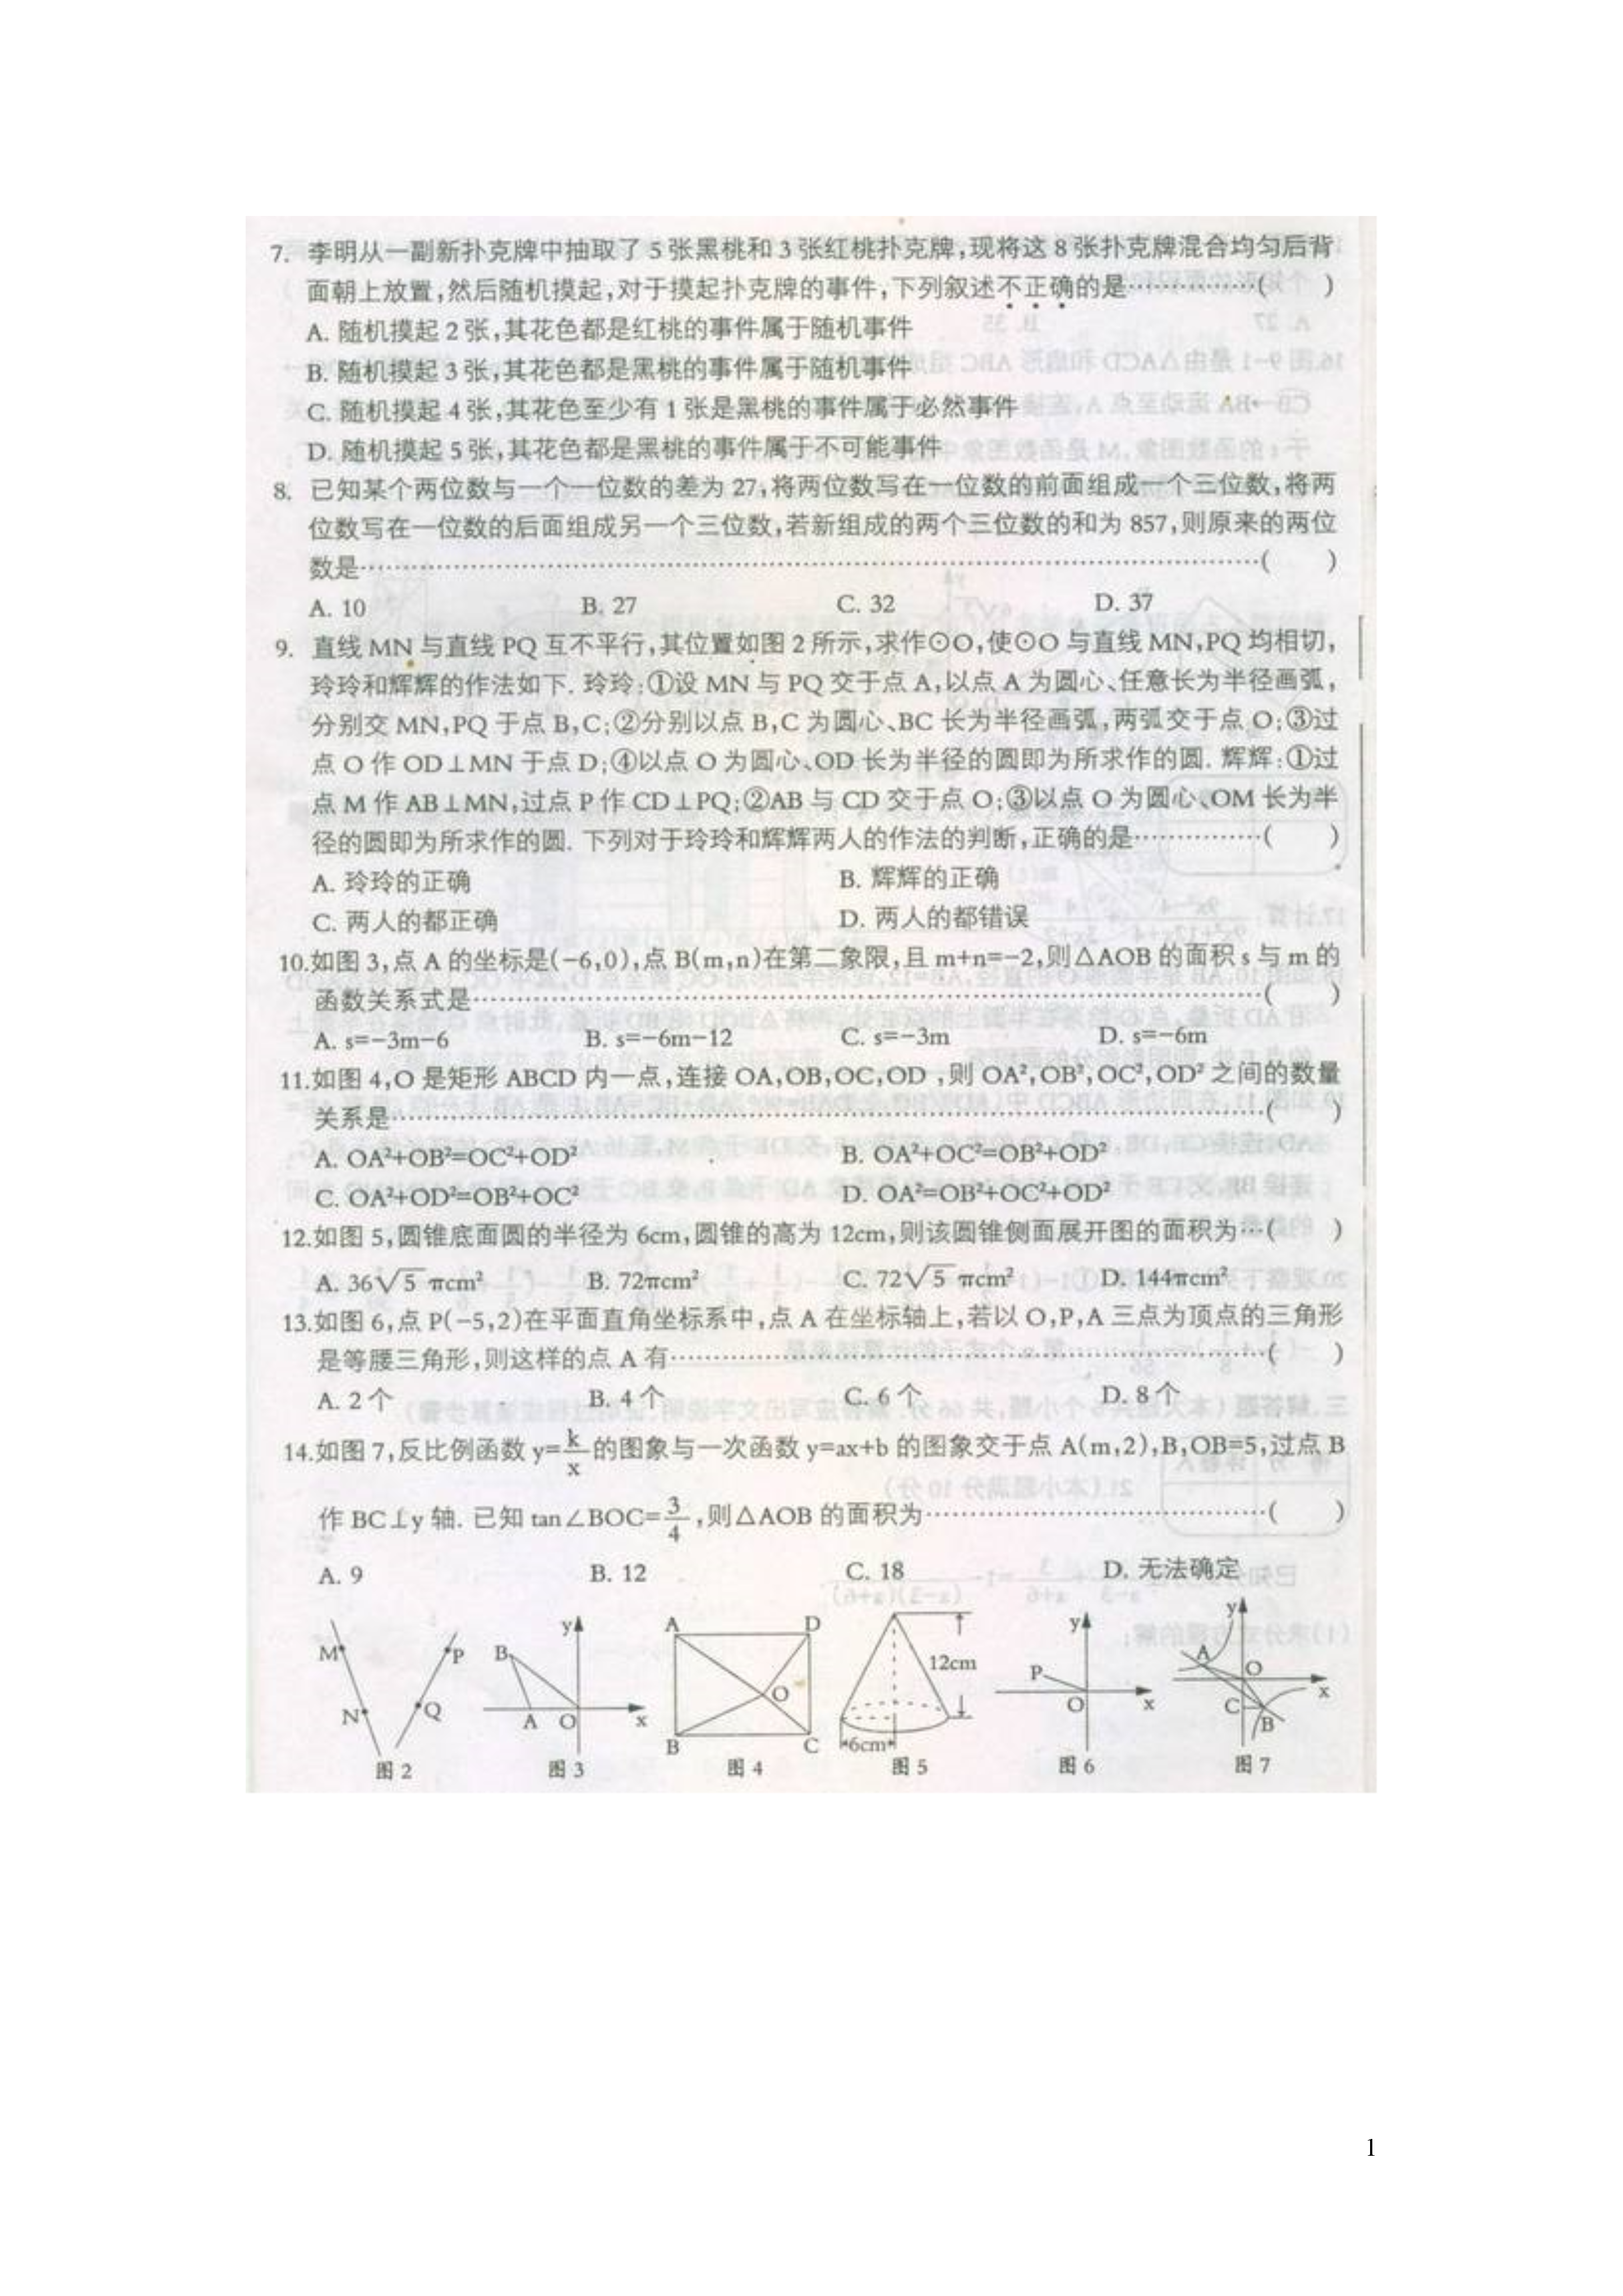 7. 李明从一副新扑克牌中抽取了5张黑桃和3张红桃扑克牌,现将这8张扑克牌混合均匀后背
面朝上放置,然后随机摸起,对于摸起扑克牌的事件,下列叙述不正确的是……………( )
A. 随机摸起2张,其花色都是红桃的事件属于随机事件
B. 随机摸起3张,其花色都是黑桃的事件属于随机事件
C. 随机摸起4张,其花色至少有1张是黑桃的事件属于必然事件
D. 随机摸起5张,其花色都是黑桃的事件属于不可能事件
8. 已知某个两位数与一个一位数的差为27,将两位数写在一位数的前面组成一个三位数,将两
位数写在一位数的后面组成另一个三位数,若新组成的两个三位数的和为857,则原来的两位
数是……………………………………………………………………………( )
A. 10 B. 27 C. 32 D. 37
9. 直线MN与直线PQ互不平行,其位置如图2所示,求作⊙O,使⊙O与直线MN,PQ均相切,
玲玲和辉辉的作法如下. 玲玲:①设MN与PQ交于点A,以点A为圆心、任意长为半径画弧,
分别交MN,PQ于点B,C;②分别以点B,C为圆心、BC长为半径画弧,两弧交于点O;③过
点O作OD⊥MN于点D;④以点O为圆心、OD长为半径的圆即为所求作的圆. 辉辉:①过
点M作AB⊥MN,过点P作CD⊥PQ;②AB与CD交于点O;③以点O为圆心、OM长为半
径的圆即为所求作的圆. 下列对于玲玲和辉辉两人的作法的判断,正确的是……………( )
A. 玲玲的正确 B. 辉辉的正确
C. 两人的都正确 D. 两人的都错误
10.如图3,点A的坐标是(-6,0),点B(m,n)在第二象限,且m+n=-2,则△AOB的面积s与m的
函数关系式是……………………………………………………………………( )
A. s=-3m-6 B. s=-6m-12 C. s=-3m D. s=-6m
11.如图4,O是矩形ABCD内一点,连接OA,OB,OC,OD,则OA²,OB²,OC²,OD²之间的数量
关系是…………………………………………………………………………( )
A. OA²+OB²=OC²+OD² B. OA²+OC²=OB²+OD²
C. OA²+OD²=OB²+OC² D. OA²=OB²+OC²+OD²
12.如图5,圆锥底面圆的半径为6cm,圆锥的高为12cm,则该圆锥侧面展开图的面积为…( )
A. 36√5 πcm² B. 72πcm² C. 72√5 πcm² D. 144πcm²
13.如图6,点P(-5,2)在平面直角坐标系中,点A在坐标轴上,若以O,P,A三点为顶点的三角形
是等腰三角形,则这样的点A有………………………………………………( )
A. 2个 B. 4个 C. 6个 D. 8个
14.如图7,反比例函数y=k/x的图象与一次函数y=ax+b的图象交于点A(m,2),B,OB=5,过点B
作BC⊥y轴. 已知tan∠BOC=3/4,则△AOB的面积为………………………………( )
A. 9 B. 12 C. 18 D. 无法确定
M P N Q
图2
y B A O x
图3
A D O B C
图4
12cm 6cm
图5
y P O x
图6
y A O x C B
图7
1